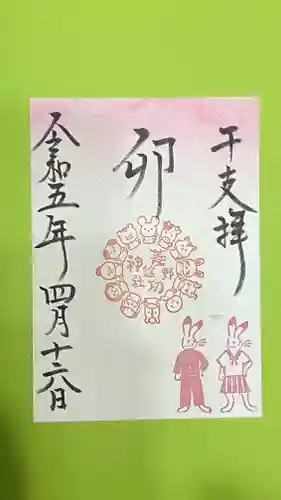 干支拝
卯
神社
令和五年 四月十六日